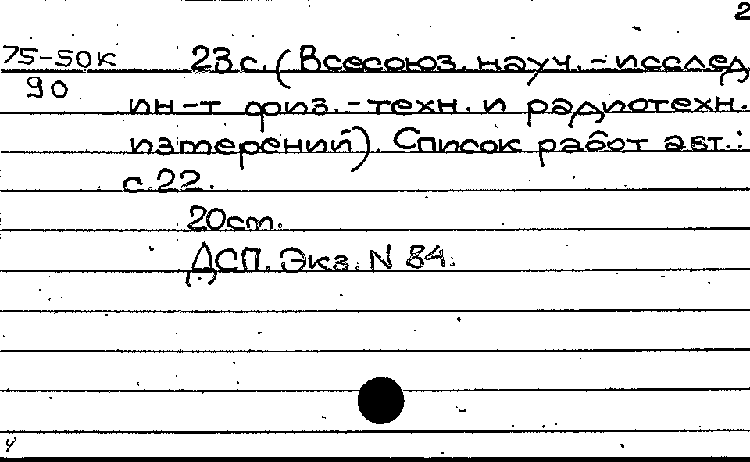 2
75-50к 23с. (Всесоюз. науч.-исслед.
90
ин-т физ.-техн. и радиотехн.
измерений). Список работ авт.:
с.22.
20см.
ДСП. Экз. N 84.